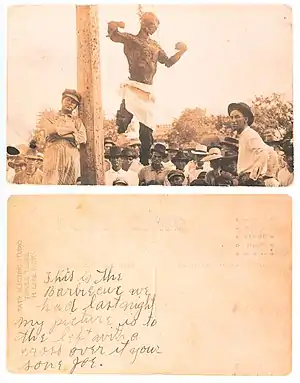 This is the
Barbecue we
had last night
my picture is to
the left with a
cross over it your
sone Joe.